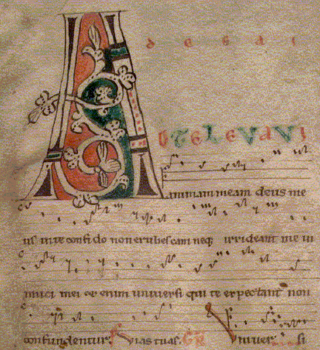 A
D TE LEVAVI
animam meam deus me
us in te confido non erubescam neq; irrideant me in
imici mei & enim universi qui te expectant non
confundentur. Vias tuas. GR Univer si